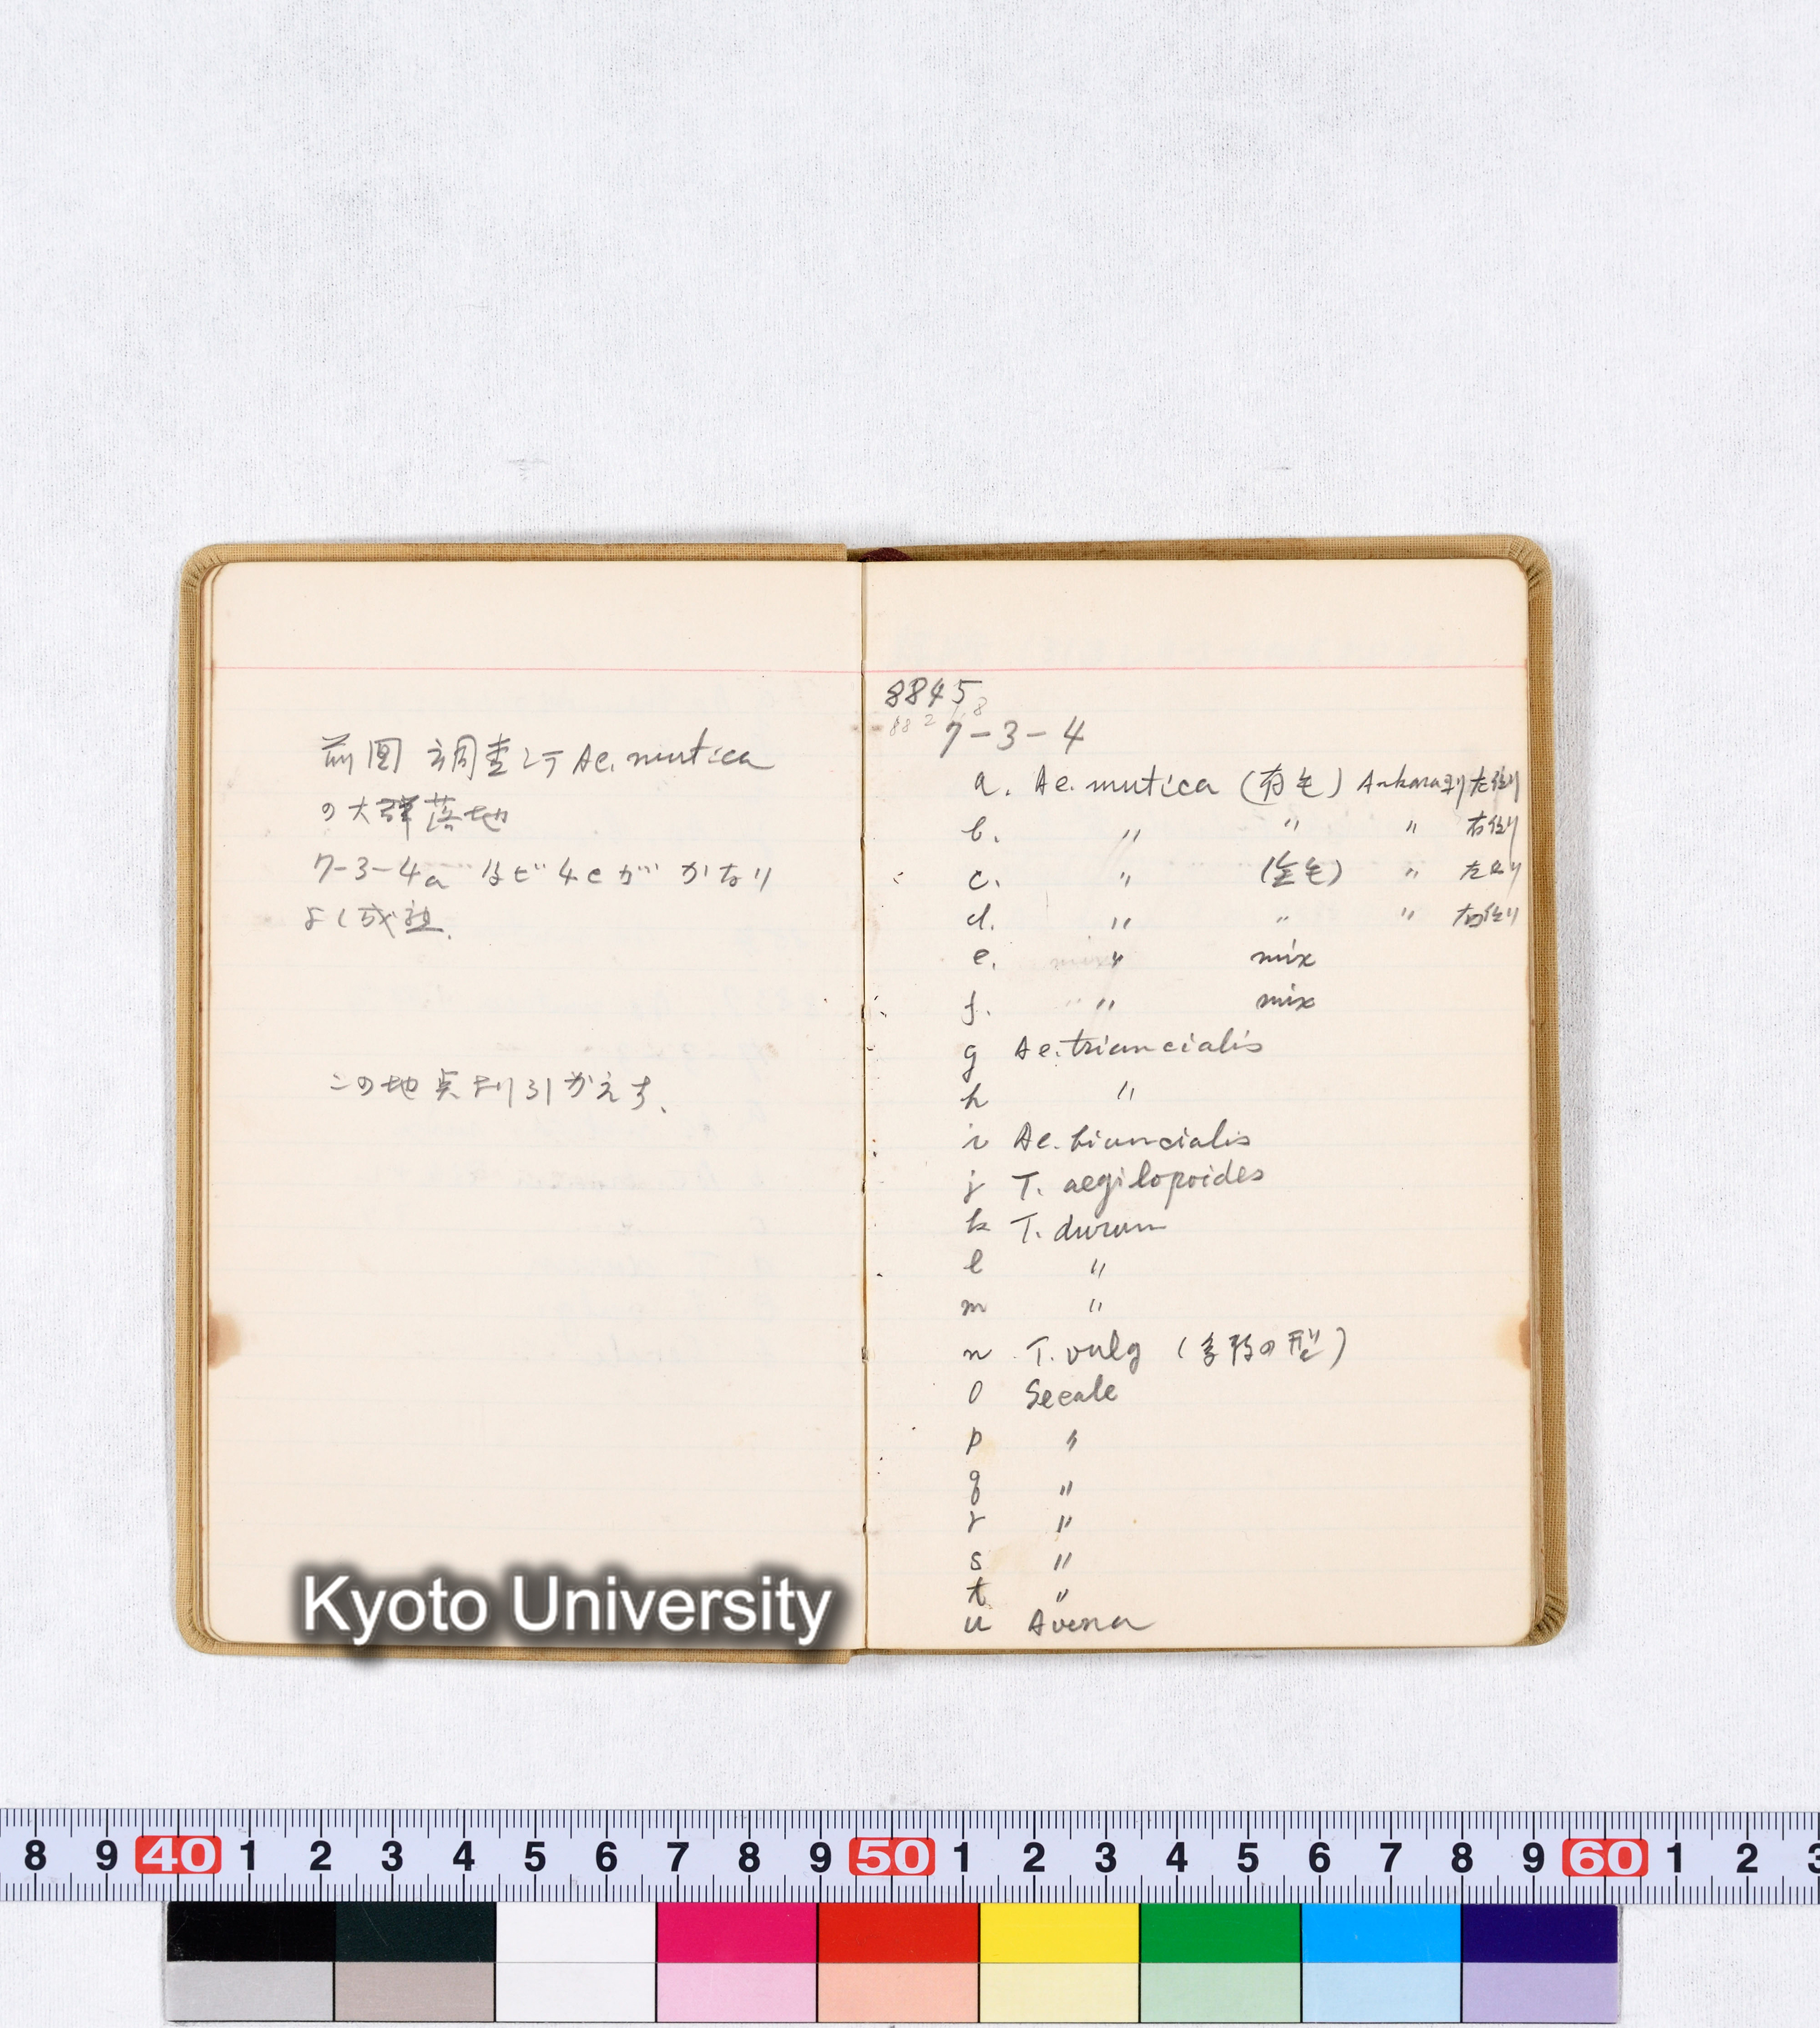 前回調査シテ Ae. mutica
の大群落地
7-3-4a など 4c が かなり
よく成
この地点ヨリ引かえす、
8845
7-3-4
a. Ae. mutica (有毛) Ankaraヨリ左側
b. 〃 〃 〃 右側
c. 〃 (無毛) 〃 左側
d. 〃 〃 〃 右側
e. 〃 mix
f. 〃 mix
g Ae. triuncialis
h 〃
i Ae. biuncialis
j T. aegilopoides
k T. durum
l 〃
m 〃
n T. vulg (多数の型)
o Secale
p 〃
q 〃
r 〃
s 〃
t 〃
u Avena
Kyoto University
8 9 40 1 2 3 4 5 6 7 8 9 50 1 2 3 4 5 6 7 8 9 60 1 2 3